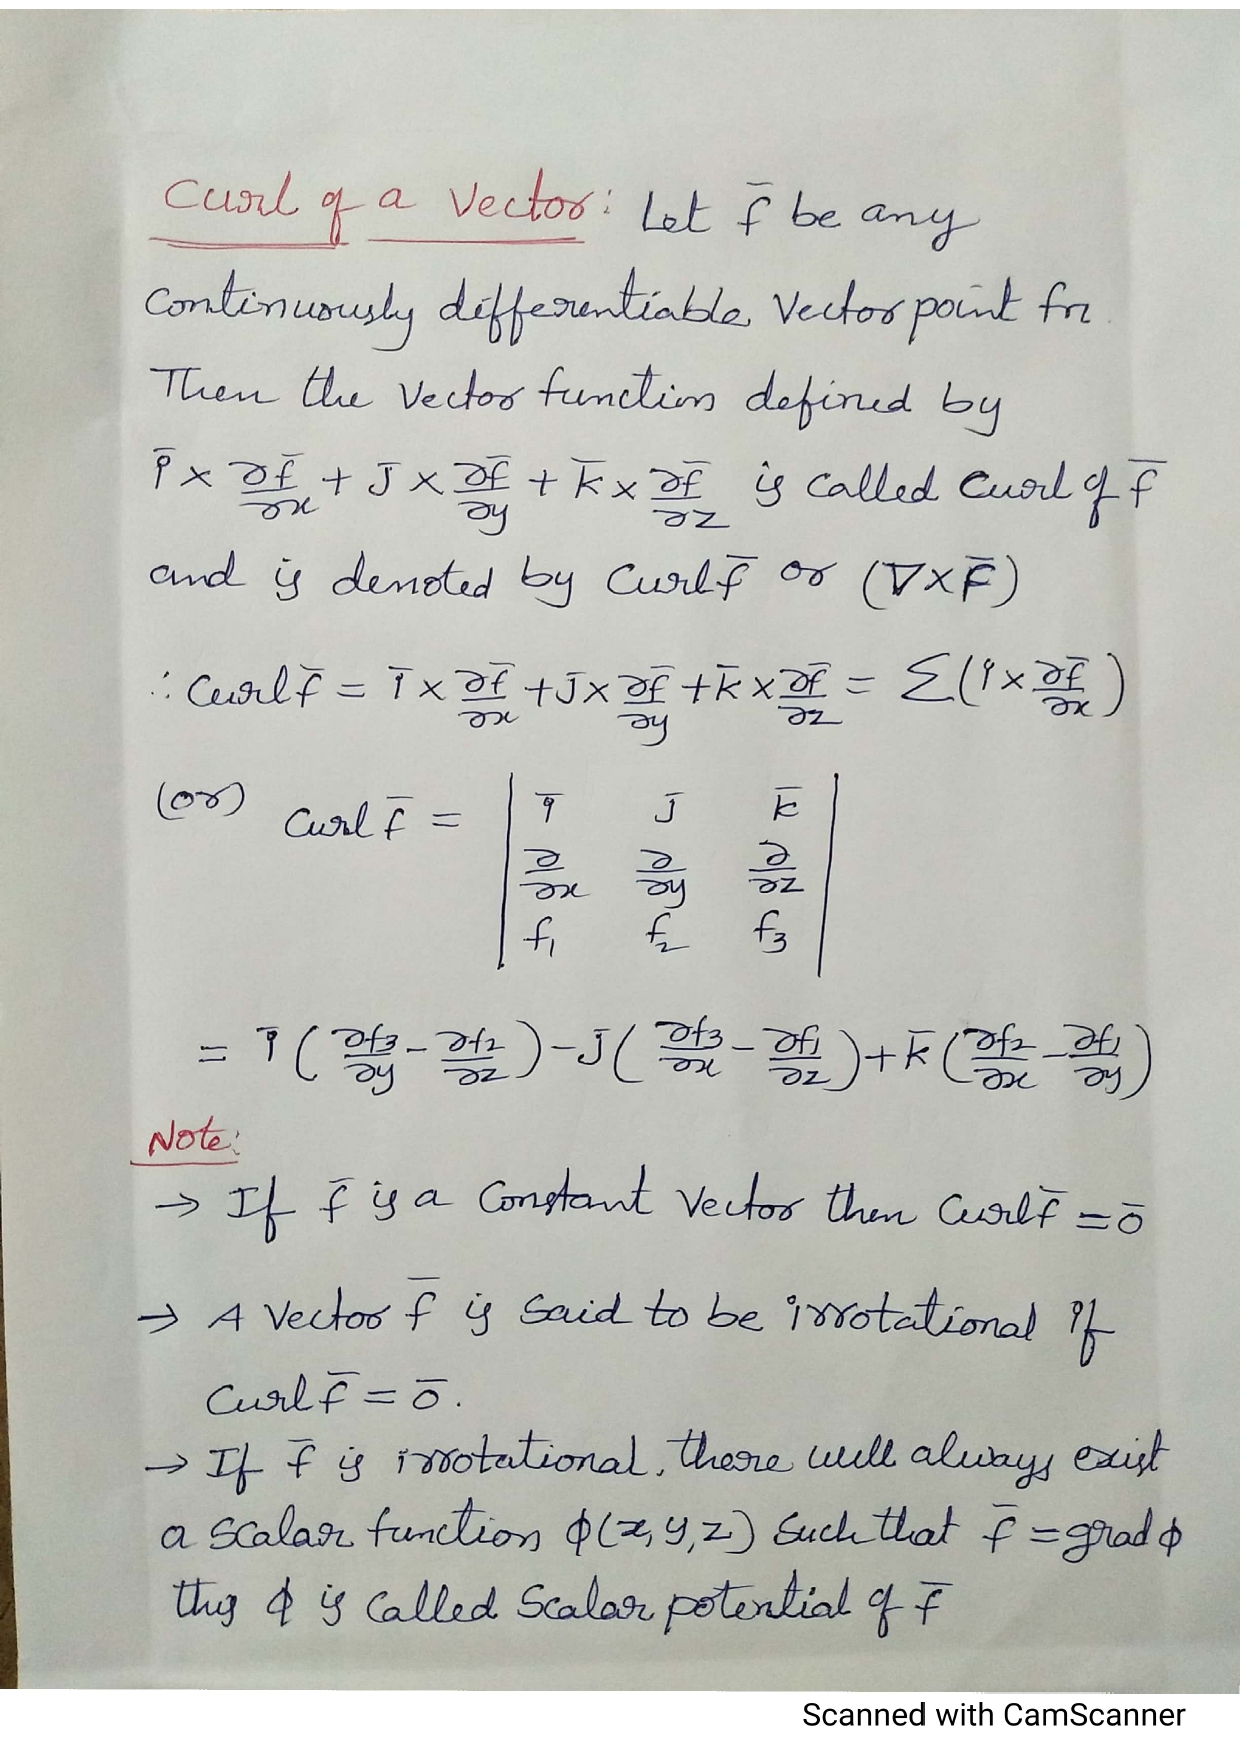 Curl of a Vector: Let f̄ be any
continuously differentiable Vector point fn.
Then the Vector function defined by
ī × ∂f̄/∂x + j̄ × ∂f̄/∂y + k̄ × ∂f̄/∂z is called Curl of f̄
and is denoted by Curl f̄ or (∇×F̄)
∴ Curl f̄ = ī × ∂f̄/∂x + j̄ × ∂f̄/∂y + k̄ × ∂f̄/∂z = Σ(i × ∂f̄/∂x)
(or) Curl f̄ = | ī j̄ k̄ |
| ∂/∂x ∂/∂y ∂/∂z |
| f₁ f₂ f₃ |
= ī (∂f₃/∂y - ∂f₂/∂z) - j̄ (∂f₃/∂x - ∂f₁/∂z) + k̄ (∂f₂/∂x - ∂f₁/∂y)
Note:
→ If f̄ is a Constant Vector then Curl f̄ = ō
→ A Vector f̄ is Said to be irrotational if
Curl f̄ = ō.
→ If f̄ is irrotational, there will always exist
a Scalar function ϕ(x, y, z) Such that f̄ = grad ϕ
this ϕ is Called Scalar potential of f̄
Scanned with CamScanner